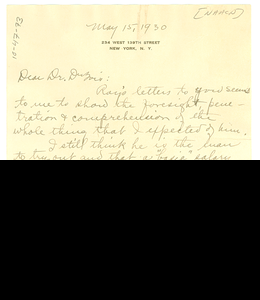 [NAACP]
May 15, 1930
234 WEST 109TH STREET
NEW YORK, N. Y.
Dear Dr. Du Bois:
Roy's letters to you seem
to me to show the foresight, pene-
tration & comprehension of the
whole thing that I expected of him.
I still think he is the man
to try out and that a "basic" salary